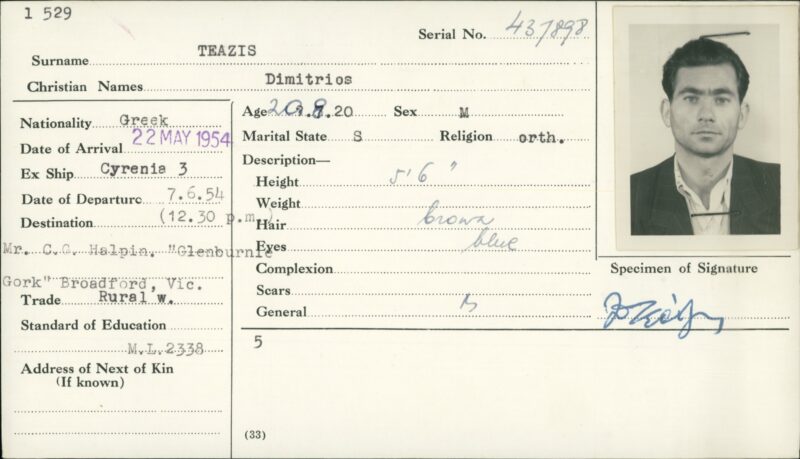 1 529
Serial No. 437898
Surname TEAZIS
Christian Names Dimitrios
Nationality Greek
Date of Arrival 22 MAY 1954
Ex Ship Cyrenia 3
Date of Departure 7.6.54
Destination (12.30 p.m.)
Mr. C.O. Halpin. "Glenburnie
Gork" Broadford, Vic.
Trade Rural w.
Standard of Education
M.L.2338
Address of Next of Kin
(If known)
Age 20 Sex M
Marital State S Religion orth.
Description—
Height 5'6"
Weight
Hair brown
Eyes blue
Complexion
Scars
General
5
(33)
Specimen of Signature